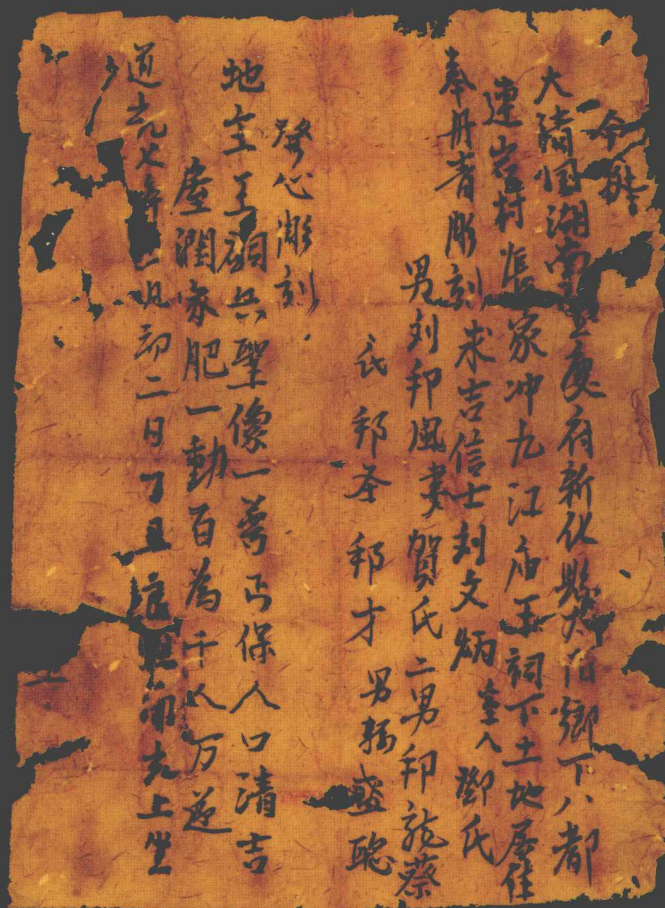 今據
大清国湖南宝慶府新化縣大陽鄉下八都
連岩村張家冲九江庙王祠下土地居住
奉丹青彫刻求吉信士刘文炳室人鄧氏
男刘邦凰妻賀氏二男邦龍蔡
氏邦圣邦才男轿盛聪
發心彫刻
地主王嗣兵聖像一尊丐保人口清吉
屋潤家肥一動百為千从万遂
道光 年二月初二日丁丑 開光上坐